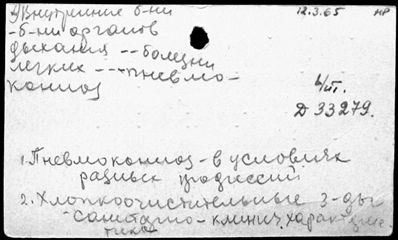 Внутренние б-ни 12.3.65 нр
- б-ни органов
дыхания -- болезни
легких --- пневмо-
кониоз
Д 33279.
1. Пневмокониоз - в условиях
разных профессий
2. Хлопкоочистительные з-ды
- санитарно - клинич. характерис-
тика